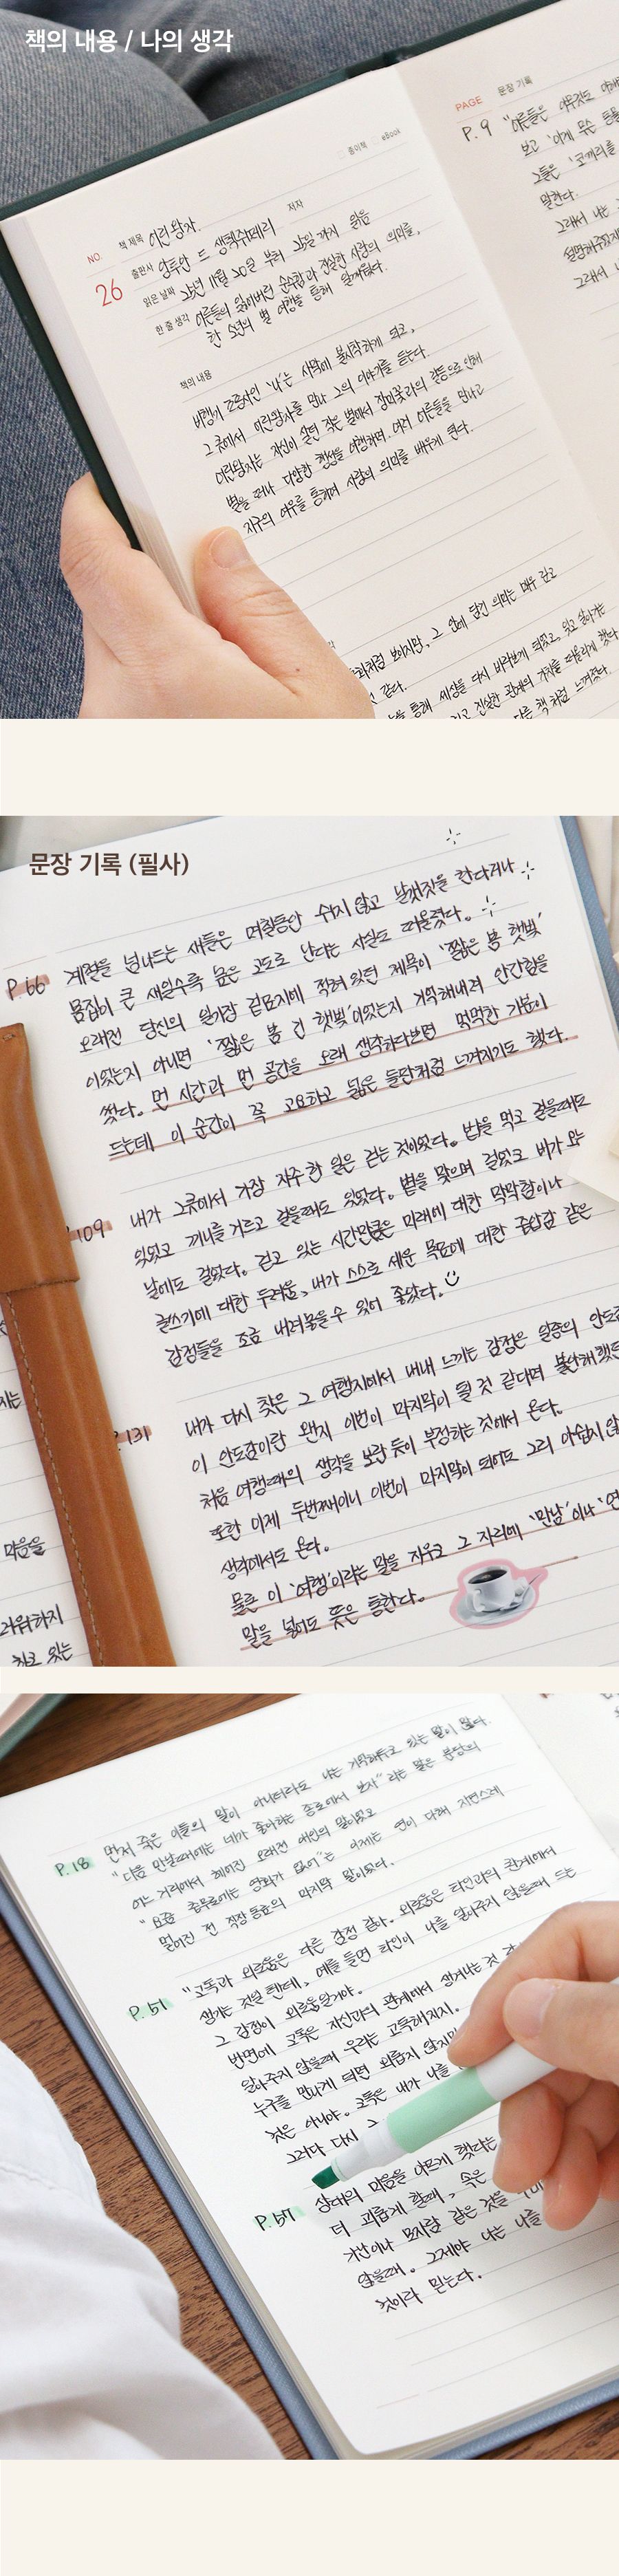 책의 내용 / 나의 생각
종이책 eBook
NO. 책 제목 어린왕자 저자
26 출판사 앙투안 드 생텍쥐페리
읽은 날짜 25년 11월 20일 부터 25일 까지 읽음
한 줄 생각 어른들의 잃어버린 순수함과 진실한 사랑의 의미를,
한 소년의 별 여행을 통해 일깨워준다.
책의 내용
비행기 조종사인 '나'는 사막에 불시착하게 되고,
그 곳에서 어린왕자를 만나 그의 이야기를 듣는다.
어린왕자는 자신이 살던 작은 별에서 장미꽃과의 갈등으로 인해
별을 떠나 다양한 행성을 여행하며, 여러 어른들을 만나고
지구의 여우를 통해서 사랑의 의미를 배우게 된다.
동화처럼 보이지만, 그 안에 담긴 의미는 매우 깊고
것 같다.
통해 세상을 다시 바라보게 되었고, 잊고 살아가는
그리고 진실한 관계의 가치를 떠올리게 했다.
다른 책처럼 느껴졌다.
PAGE 문장 기록
P. 9 "어른들은 아무것도
보고 '이게 무슨
그들은 '코끼리를
말한다.
그래서 나는
설명해주었지
그래서 나
문장 기록 (필사)
P. 66 계절을 넘나드는 새들은 며칠동안 쉬지 않고 날갯짓을 한다거나
몸집이 큰 새일수록 높은 고도로 난다는 사실도 떠올렸다.
오래전 당신의 일기장 겉표지에 적혀 있던 제목이 '짧은 봄 햇빛'
이었는지 아니면 '짧은 봄 긴 햇빛'이었는지 기억해내려 안간힘을
썼다. 먼 시간과 먼 공간을 오래 생각하다보면 먹먹한 기분이
드는데 이 순간이 꼭 고요하고 넓은 들판처럼 느껴지기도 했다.
109 내가 그곳에서 가장 자주 한 일은 걷는 것이었다. 밥을 먹고 걸을때도
있었고 끼니를 거르고 걸을때도 있었다. 볕을 맞으며 걸었고 비가 오는
날에도 걸었다. 걷고 있는 시간만큼은 미래에 대한 막막함이나
글쓰기에 대한 두려움, 내가 스스로 세운 목표에 대한 중압감 같은
감정들을 조금 내려놓을 수 있어 좋았다.
131 내가 다시 찾은 그 여행지에서 내내 느끼는 감정은 일종의 안도감
이 안도감이란 왠지 이번이 마지막이 될 것 같다며 불안해했던
처음 여행때의 생각을 보란 듯이 부정하는 것에서 온다.
또한 이제 두번째이니 이번이 마지막이 되어도 그리 아쉽지 않
생각에서도 온다.
물론 이 '여행'이라는 말을 지우고 그 자리에 '만남'이나 '연
말을 넣어도 뜻은 통한다.
마음을
하고 있는
P. 18 먼저 죽은 이들의 말이 아니더라도 나는 기억해두고 있는 말이 많다.
"다음 만날때에는 네가 좋아하는 종로에서 보자"라는 말은 분당의
어느 거리에서 헤어진 오래전 애인의 말이었고
"요즘 충무로에는 영화가 없어"는 이제는 연이 다해 자연스레
멀어진 전 직장 동료의 마지막 말이었다.
P. 51 "고독과 외로움은 다른 감정 같아. 외로움은 타인과의 관계에서
생기는 것일 텐데, 예를 들면 타인이 나를 알아주지 않을때 드는
그 감정이 외로움일거야.
반면에 고독은 자신과의 관계에서 생겨나는 것
알아주지 않을때 우리는 고독해지지.
누구를 만나게 되면 외롭지 않지만
것은 아니야. 고독은 내가 나를
그러다 다시 그
P. 57 상대의 마음을 아프게 했다는
더 괴롭게 할때, 속은
가난이나 모자람 같은 것을
않을때. 그제야 나는 나를
것이라 믿는다.